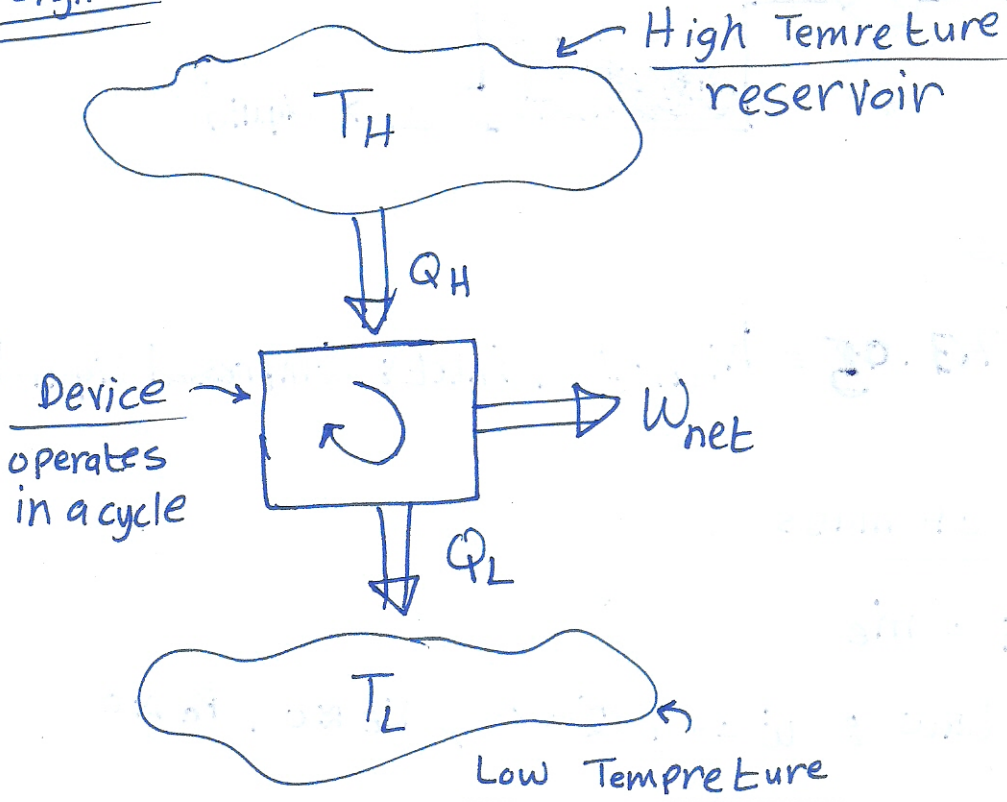 High Temreture
reservoir
T_H
Q_H
Device
operates
in a cycle
W_net
Q_L
T_L
Low Tempreture